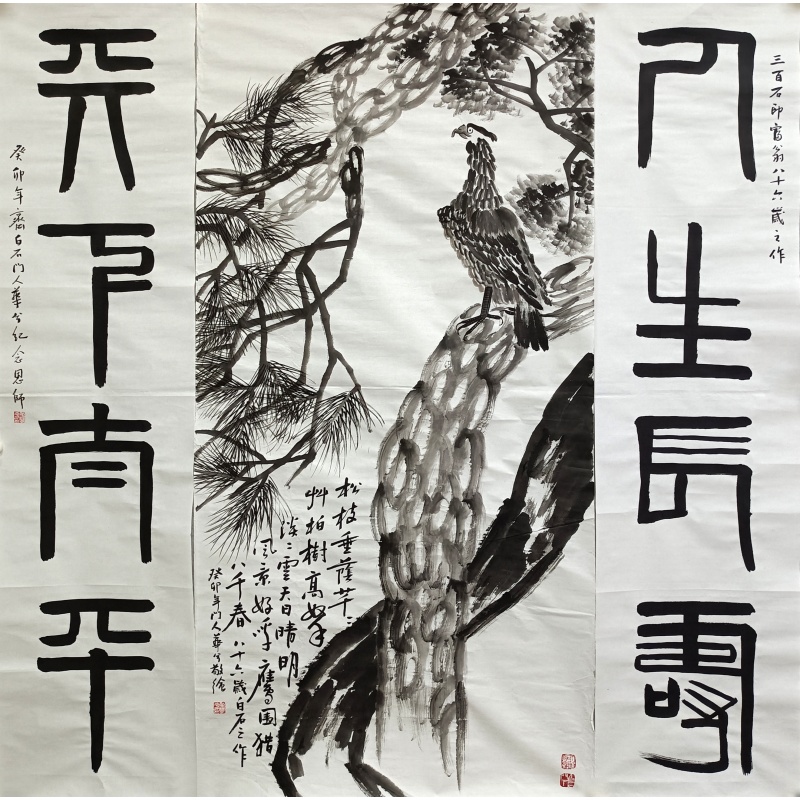 三百石印富翁八十六歲之作
人生長壽
松枝垂蔭芊〻
艸柏樹高攀
淡〻雲天日晴明
風景好呼鷹圍猎
八千春 八十六歲白石之作
癸卯年門人華兮敬繪
天下太平
癸卯年齋白石门人華兮纪念恩师